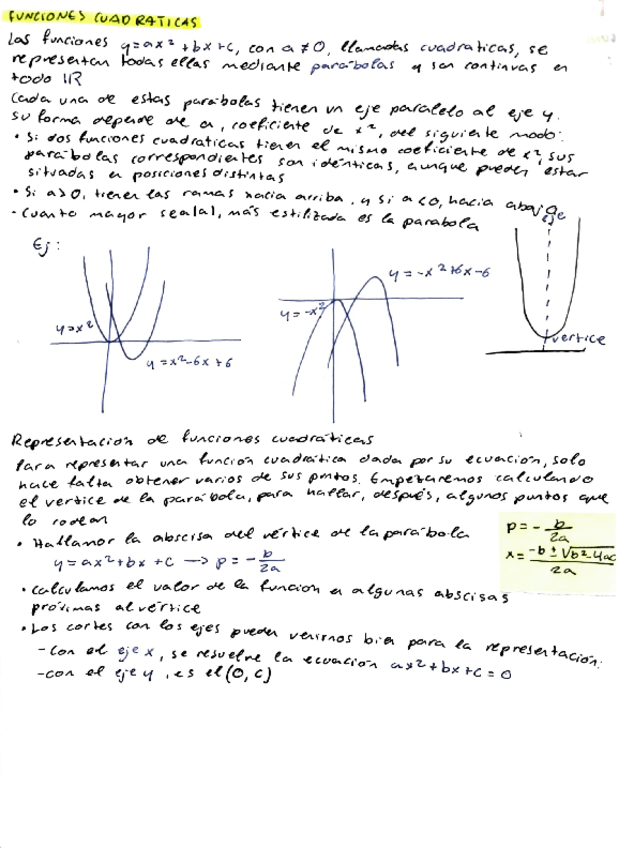 FUNCIONES CUADRATICAS
Las funciones y=ax²+bx+c, con a≠0, llamadas cuadraticas, se
representan todas ellas mediante parábolas y son continuas en
todo IR
Cada una de estas parábolas tienen un eje paralelo al eje y.
Su forma depende de a, coeficiente de x², del siguiente modo:
• Si dos funciones cuadraticas tienen el mismo coeficiente de x², sus
parábolas correspondientes son idénticas, aunque pueden estar
situadas en posiciones distintas
• Si a>0, tienen las ramas hacia arriba, y si a<0, hacia abajo
• Cuanto mayor sea |a|, más estilizada es la parabola
Ej:
y=x²
y=x²-6x+6
y=-x²
y=-x²+6x-6
eje
vertice
Representación de funciones cuadráticas
Para representar una función cuadrática dada por su ecuación, solo
hace falta obtener varios de sus puntos. Empezaremos calculando
el vertice de la parábola, para hallar, después, algunos puntos que
lo rodean
• Hallamos la abscisa del vértice de la parábola
y=ax²+bx+c → p=-b/2a
p=-b/2a
x=-b±√b²-4ac/2a
• Calculamos el valor de la función en algunas abscisas
próximas al vértice
• Los cortes con los ejes pueden venirnos bien para la representación:
-con el eje x, se resuelve la ecuación ax²+bx+c=0
-con el eje y, es el (0,c)